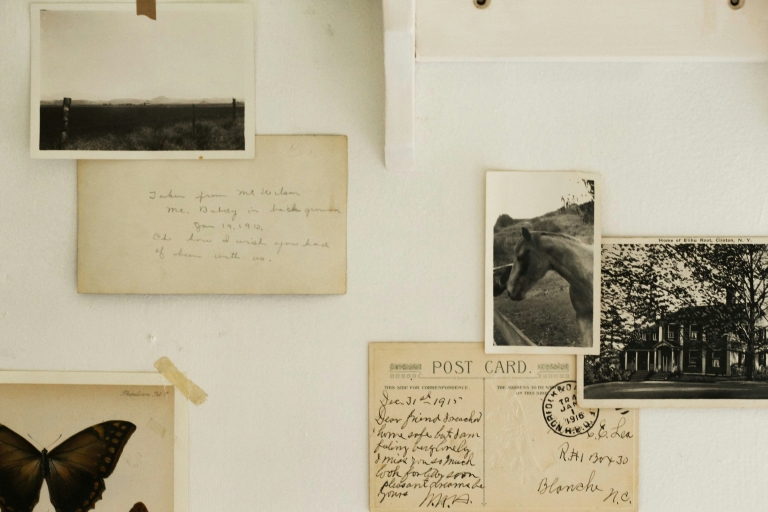 Taken from Mt Wilson
Mt. Baldy in background
Jan 19, 1913.
Oh how I wish you had
of been with us.
Home of Elihu Root, Clinton, N. Y.
POST CARD.
THIS SIDE FOR CORRESPONDENCE
THE ADDRESS TO BE
ON THIS SIDE
Dec. 31st 1915
Dear friend I reached
home safe but I am
feling very lonely
I miss you so much
look for letter soon
pleasant dreams
yours
NORFOLK
JAN
1916
R.P.O.
C. E. Lea
R#1 Box 30
Blanche
N.C.